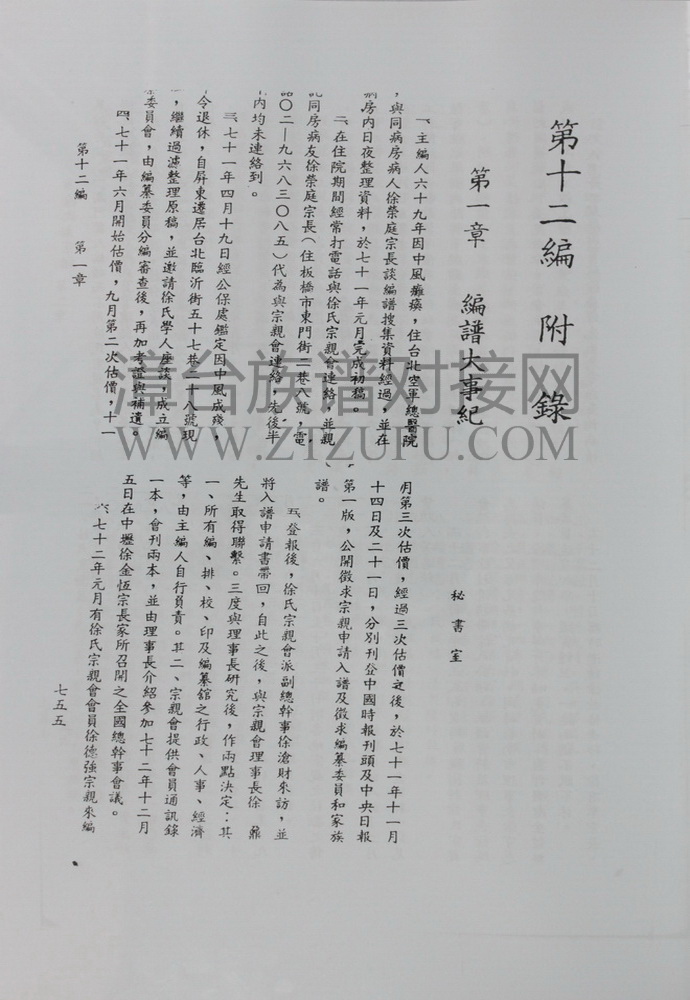 第十二編　附錄
第一章　編譜大事紀
秘書室
一、主編人六十九年因中風癱瘓，住台北空軍總醫院
，與同病房病人徐榮庭宗長談編譜搜集資料經過，並在
病房內日夜整理資料，於七十一年元月完成初稿。
二、在住院期間經常打電話與徐氏宗親會連絡，並親
同房病友徐榮庭宗長（住板橋市東門街二巷八號，電
話〇二—九六八三〇八五）代為與宗親會連絡，先後半
內均未連絡到。
三、七十一年四月十九日經公保處鑑定因中風成殘，
令退休，自屏東遷居台北臨沂街五十七巷二十八號現
，繼續過濾整理原稿，並邀請徐氏學人座談，成立編
委員會，由編纂委員分編審查後，再加考證與補遺。
四、七十一年六月開始估價，九月第二次估價，十一
月第三次估價，經過三次估價之後，於七十一年十一月
十四日及二十一日，分別刊登中國時報刊頭及中央日報
第一版，公開徵求宗親申請入譜及徵求編纂委員和家族
譜。
五、登報後，徐氏宗親會派副總幹事徐滄財來訪，並
將入譜申請書帶回，自此之後，與宗親會理事長徐　鼎
先生取得聯繫。三度與理事長研究後，作兩點決定：其
一、所有編、排、校、印及編纂館之行政、人事、經濟
等，由主編人自行負責。其二、宗親會提供會員通訊錄
一本，會刊兩本，並由理事長介紹參加七十二年十二月
五日在中壢徐金恆宗長家所召開之全國總幹事會議。
六、七十二年元月有徐氏宗親會會員徐德強宗親來編
第十二編　第一章
七五五
漳台族谱对接网
WWW.ZTZUPU.COM